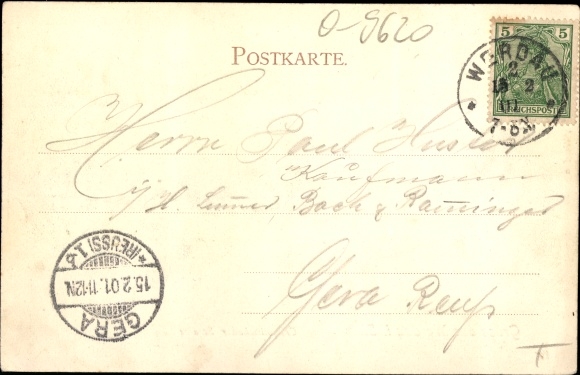 O-9620
POSTKARTE.
5 5
REICHSPOST
WERDAU
2
15 2
01
7-8N
Herrn Paul
Kaufmann
Bach & Ramminger
Gera Reuß
GERA
15.2.01.11-12N.
*(REUSS)1.b